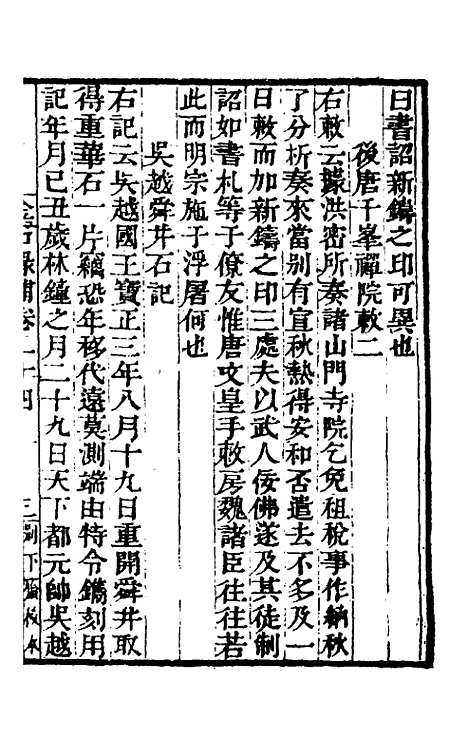 日書詔新鑄之印可異也
後唐千峯禪院敕二
右敕云據洪密所奏諸山門寺院乞免租稅事作納秋
了分析奏來當别有宣秋熱得安和否遣去不多及一
日敕而加新鑄之印三處夫以武人佞佛遂及其徒制
詔如書札等于僚友惟唐文皇手敕房魏諸臣往往若
此而明宗施于浮屠何也
吳越舜井石記
右記云吳越國王寶正三年八月十九日重開舜井取
得重華石一片竊恐年移代遠莫測端由特令鐫刻用
記年月己丑歲林鐘之月二十九日天下都元帥吳越
金石錄補卷二十四
三